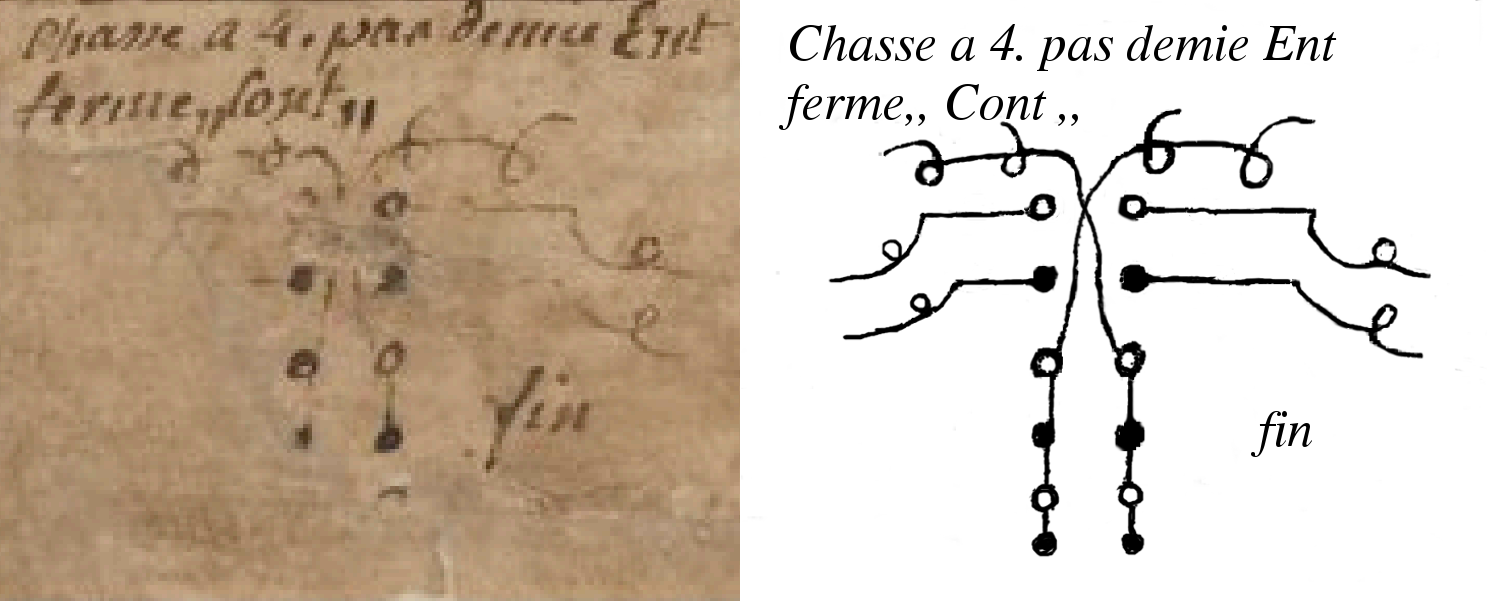 Chasse a 4. pas demie Ent
ferme,, Cont ,,
fin
Chasse a 4. pas demie Ent
ferme,, Cont ,,
fin